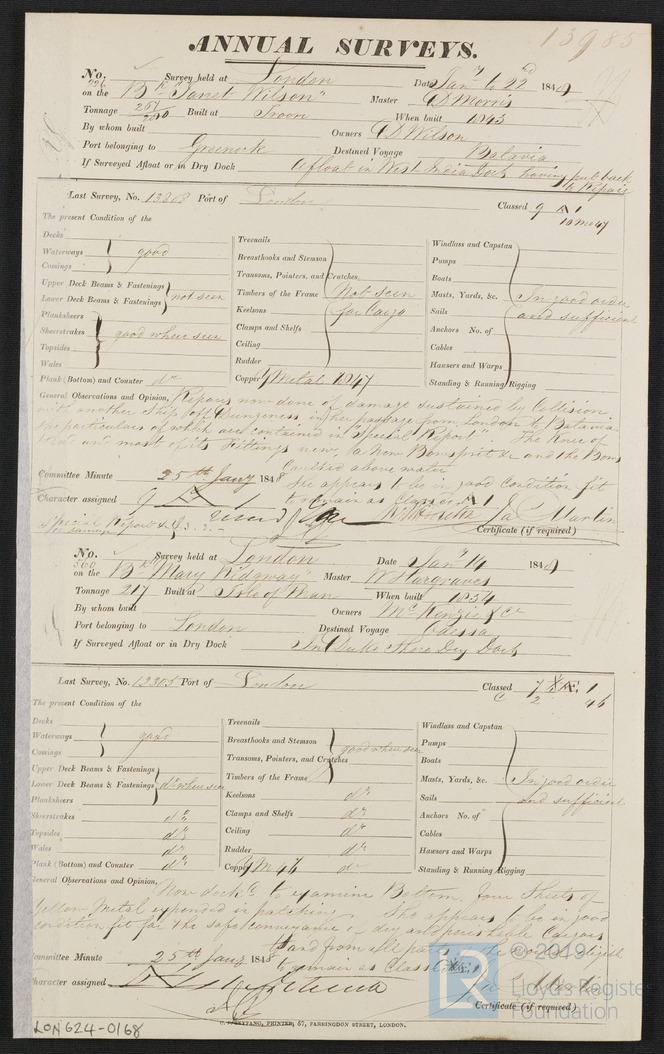 13985
ANNUAL SURVEYS.
No. 226 Survey held at London Date Jany 6 to 22d 1848
on the Bk "Janet Wilson" Master D Morris
Tonnage Built at Troon When built 1843
By whom built Owners D Wilson
Port belonging to Greenock Destined Voyage Batavia
If Surveyed Afloat or in Dry Dock Afloat in West India Dock having put back to Repair
Last Survey, No. 13808 Port of London Classed 9 A 1
10 Mo 47
The present Condition of the
Decks
Waterways good
Comings
Upper Deck Beams & Fastenings
Lower Deck Beams & Fastenings not seen
Planksheers
Sheerstrakes good where seen
Topsides
Wales
Plank (Bottom) and Counter do
Treenails
Breasthooks and Stemson
Transoms, Pointers, and Crutches
Timbers of the Frame Not seen
Keelsons for Cargo
Clamps and Shelfs
Ceiling
Rudder
Copper Y Metal 1847
Windlass and Capstan
Pumps
Boats
Masts, Yards, &c. In good order
Sails and sufficient
Anchors No. of
Cables
Hawsers and Warps
Standing & Running Rigging
General Observations and Opinion, Repairs now done of damage sustained by Collision
with another Ship off Dungeness in her passage from London to Batavia
the particulars of which are contained in "Special Report". The Knee of
Head and most of its fittings new, a New Bowsprit &c and the Bows
Caulked above water
Committee Minute 25th Jany 1848 She appears to be in good Condition fit
Character assigned 9 A 1 to remain as Classed A 1
Special Report Martin
Certificate (if required)
No. 560 Survey held at London Date Jany 14 1848
on the Bk "Mary Ridgway" Master W Hargraves
Tonnage 217 Built at Isle of Man When built 1834
By whom built Owners McKenzie & Co
Port belonging to London Destined Voyage Odessa
If Surveyed Afloat or in Dry Dock In Dry Dock
Last Survey, No. 12305 Port of London Classed Æ 1
46
The present Condition of the
Decks
Waterways good
Comings
Upper Deck Beams & Fastenings
Lower Deck Beams & Fastenings do where seen
Planksheers
Sheerstrakes do
Topsides do
Wales do
Plank (Bottom) and Counter do
Treenails
Breasthooks and Stemson good where seen
Transoms, Pointers, and Crutches
Timbers of the Frame
Keelsons do
Clamps and Shelfs do
Ceiling do
Rudder do
Copper Y M 46 do
Windlass and Capstan
Pumps
Boats
Masts, Yards, &c. In good order
Sails and sufficient
Anchors No. of
Cables
Hawsers and Warps
Standing & Running Rigging
General Observations and Opinion, Now docked to examine Bottom, four Sheets of
Yellow Metal expended in patching. She appears to be in good
condition fit for the safe conveyance of dry and perishable Cargoes
to and from all parts
Committee Minute 25th Jany 1848 to remain as Classed Æ 1
Character assigned
Certificate (if required)
PRINTER, 67, FARRINGDON STREET, LONDON.
LON624-0168
© 2019
Lloyd's Register
Foundation